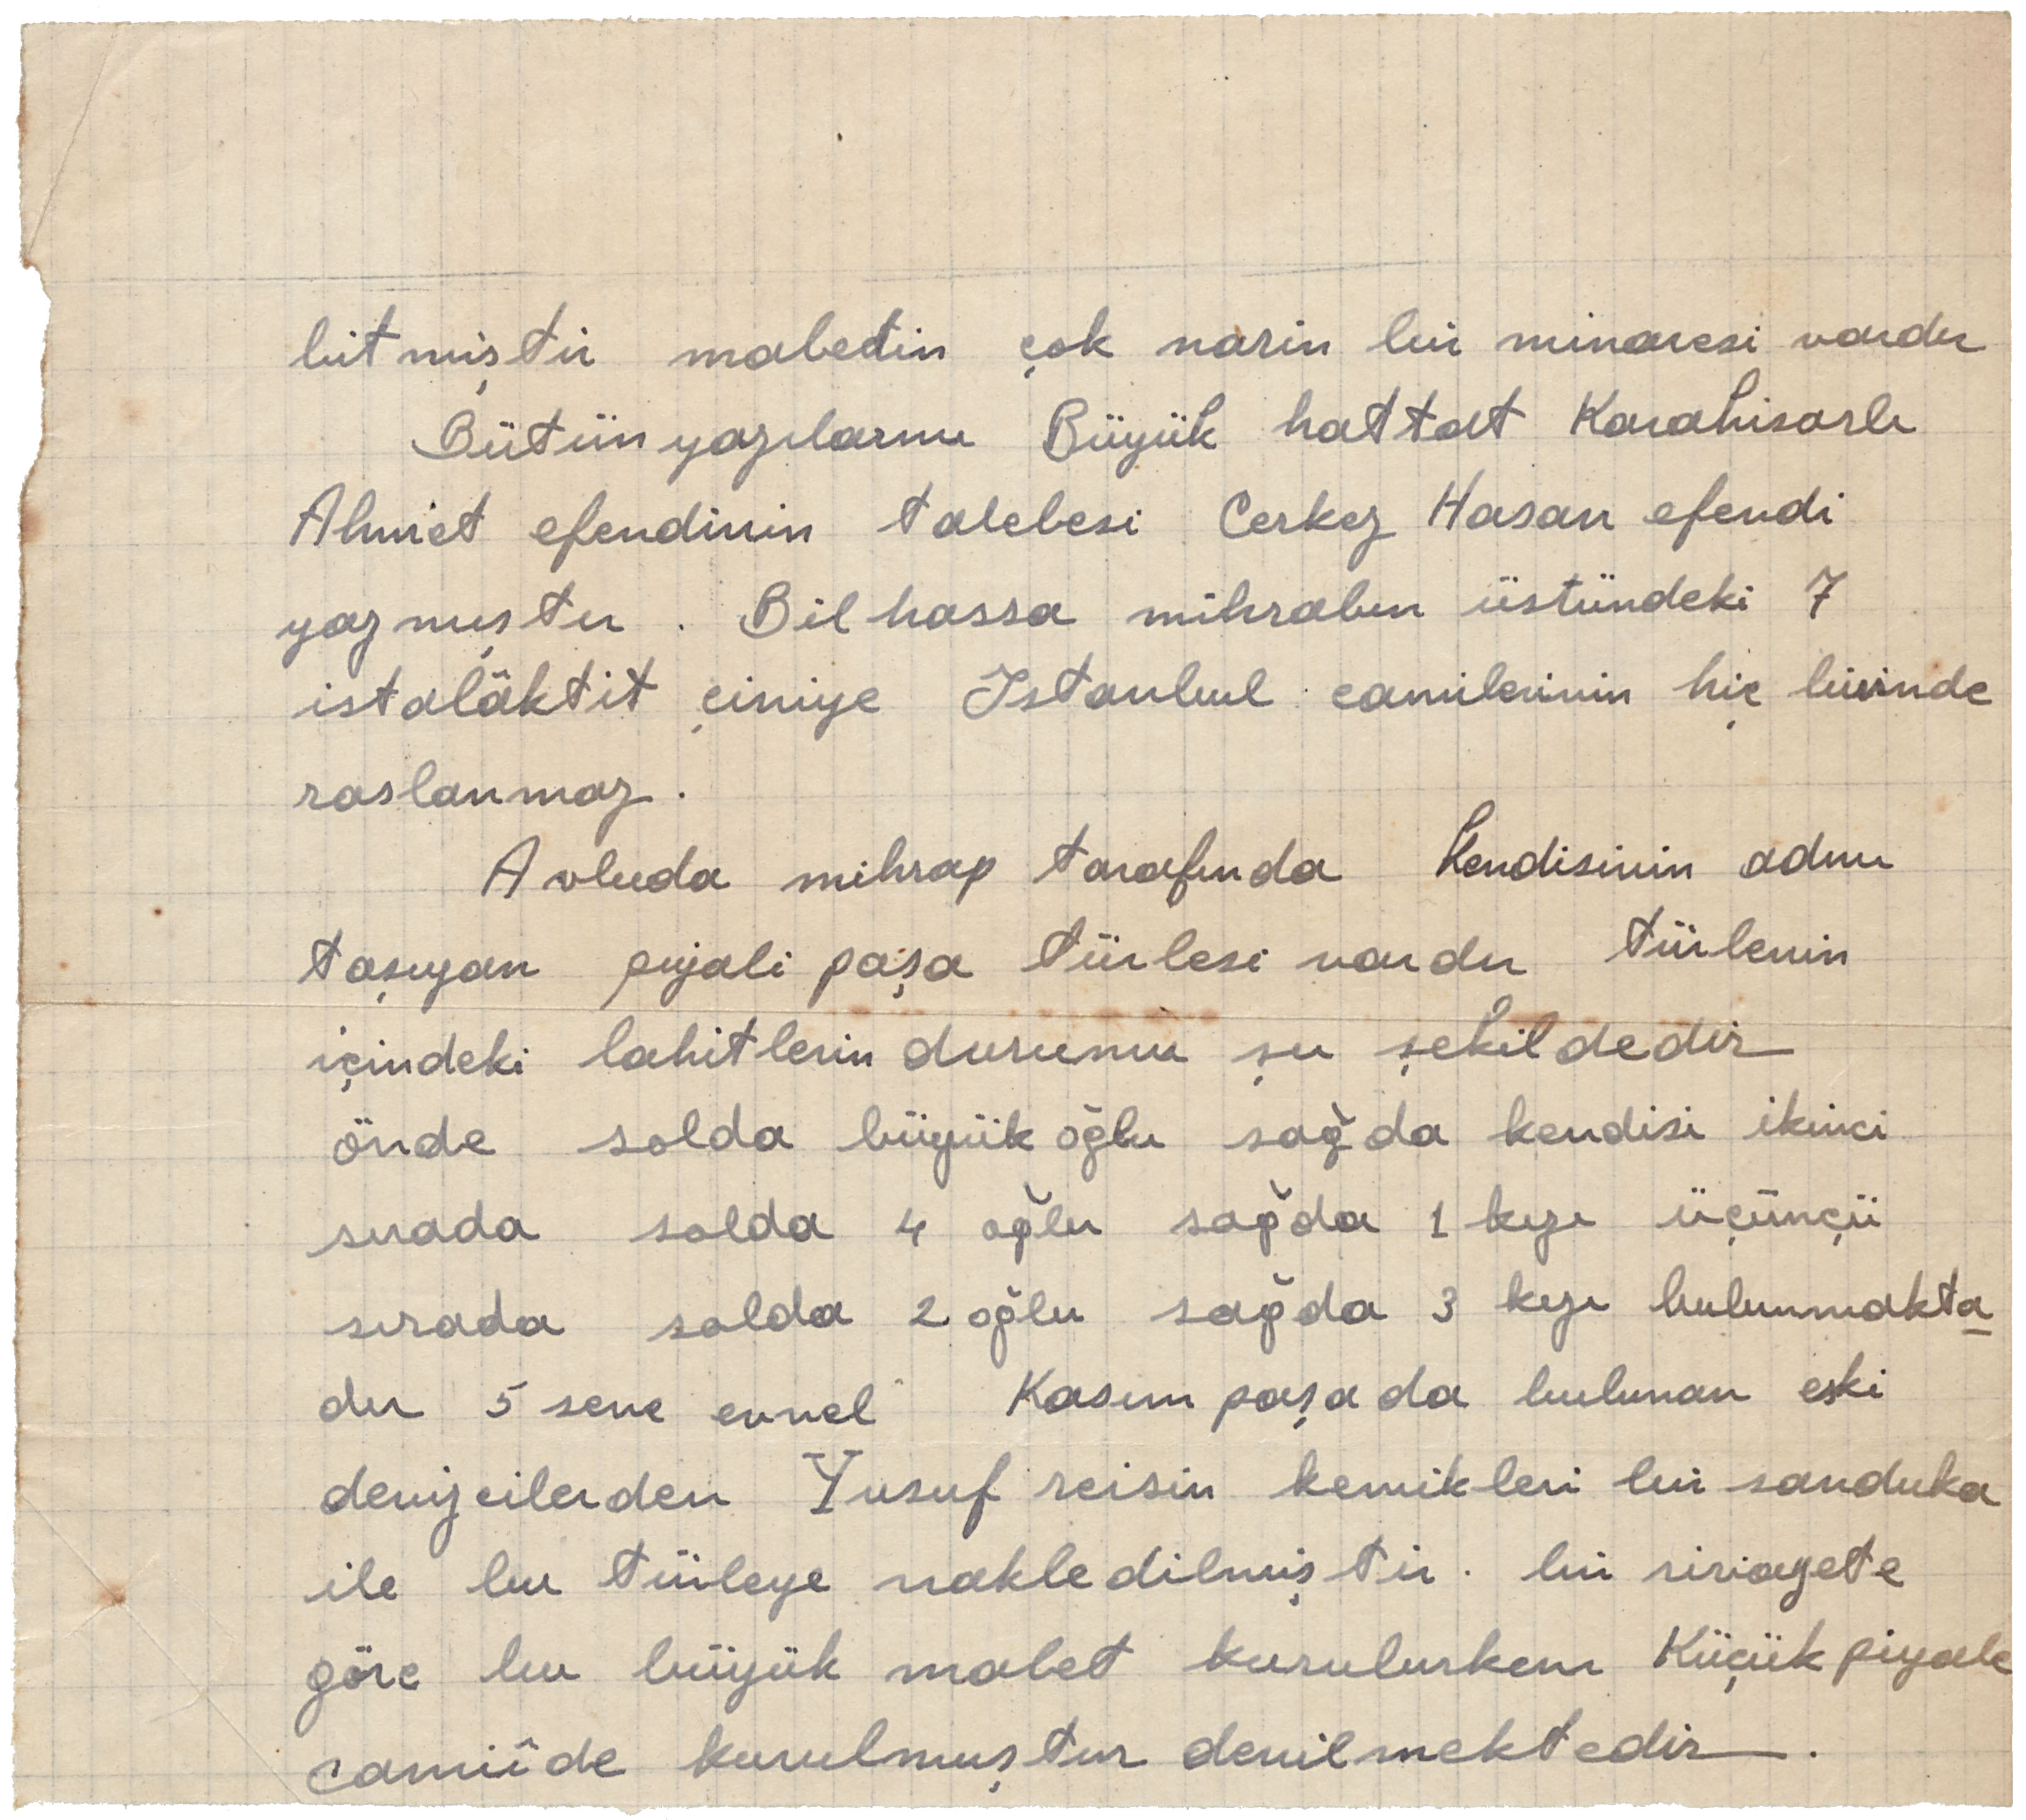 bitmiştir mabedin çok narin bir minaresi vardır
Bütün yazılarını Büyük hattat Karahisarlı
Ahmet efendinin talebesi Cerkez Hasan efendi
yazmıştır . Bilhassa mihrabın üstündeki 7
istalâktit çiniye Istanbul camilerinin hiç birinde
raslanmaz .
Avluda mihrap tarafında Kendisinin adını
taşıyan piyali paşa türbesi vardır türbenin
içindeki lahitlerin durumu şu şekildedir
önde solda büyük oğlu sağda kendisi ikinci
sırada solda 4 oğlu sağda 1 kızı üçünçü
sırada solda 2 oğlu sağda 3 kızı bulunmakta
dır 5 sene evvel Kasımpaşada bulunan eski
denizcilerden Yusuf reisin kemikleri bir sanduka
ile bu türbeye nakledilmiştir . bir rivayete
göre bu büyük mabet kurulurken Küçük piyale
camiîde kurulmuştur denilmektedir .